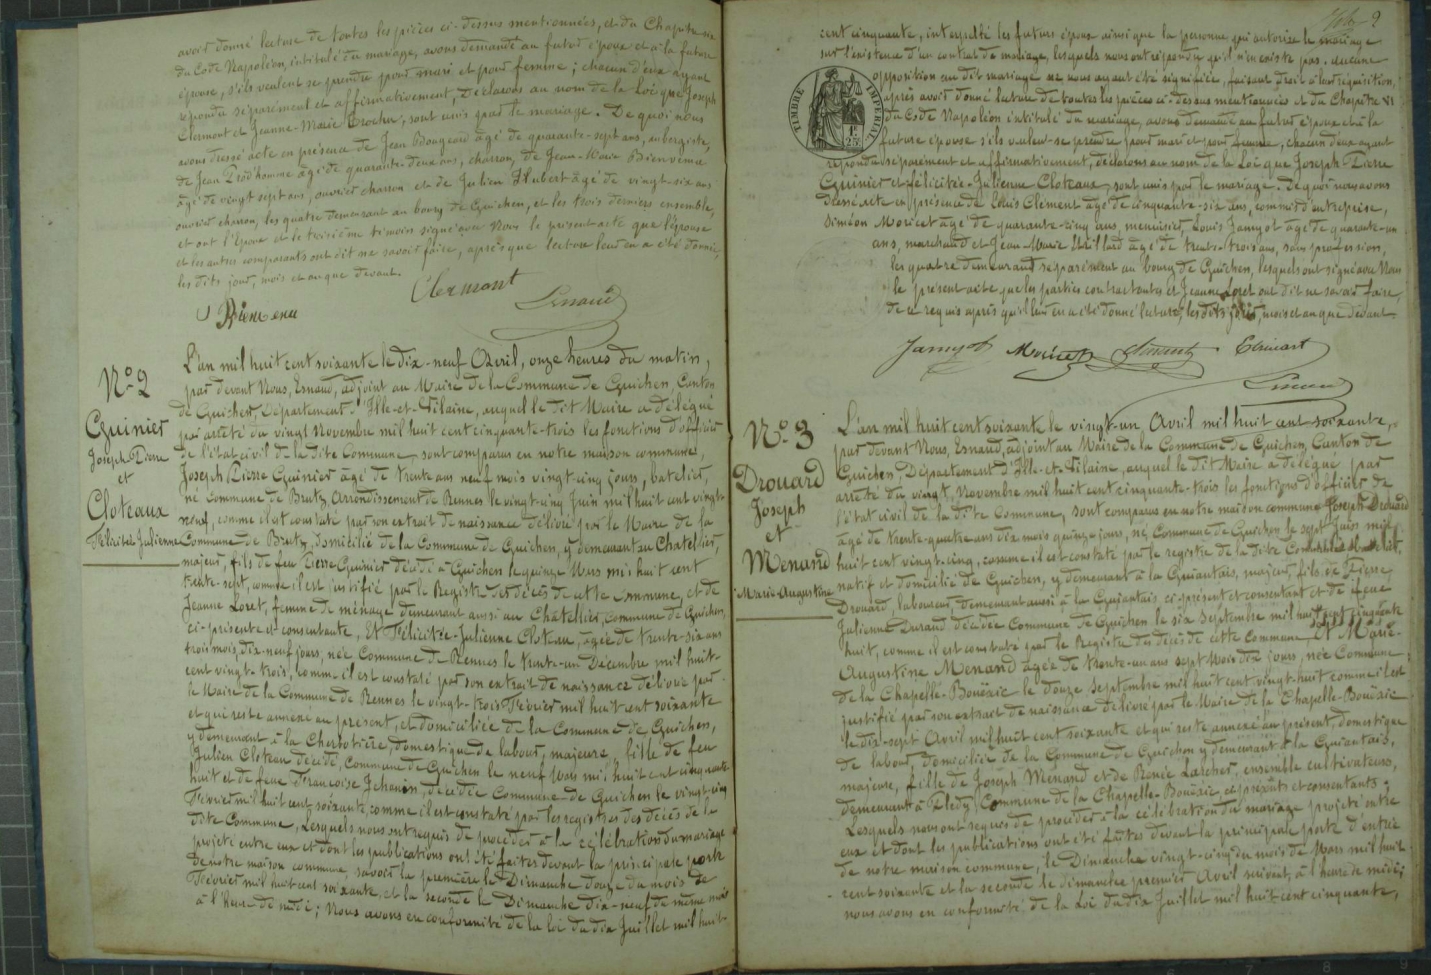 avoir donné lecture de toutes les pièces ci-dessus mentionnées, et du Chapitre six
du Code Napoléon, intitulé du mariage, avons demandé au futur époux et à la future
épouse, s'ils veulent se prendre pour mari et pour femme ; chacun d'eux ayant
répondu séparément et affirmativement, Déclarons au nom de la Loi que Joseph
Clermont et Jeanne-Marie Crocher, sont unis par le mariage. De quoi nous
avons dressé acte en présence de Jean Bougeard âgé de quarante-sept ans, aubergiste,
de Jean Prod'homme âgé de quarante-deux ans, charron, de Jean-Marie Bienvenu
âgé de vingt sept ans, ouvrier charron et de Julien Hubert âgé de vingt-six ans
ouvrier charron, les quatre demeurant au bourg de Guichen, et les trois derniers ensemble,
et ont l'Epoux et le troisième témoin signé avec Nous le présent acte que l'épouse
et les autres comparants ont dit ne savoir faire, après que lecture leur en a été donnée,
les dits jour, mois et an que devant.
Clermont
Esnaud
Bienvenu
N.o 2
Guinier
Joseph Pierre
et
Cloteaux
Félicitée Julienne
L'an mil huit cent soixante le dix-neuf Avril, onze heures du matin,
par devant Nous, Esnaud, adjoint au Maire de la Commune de Guichen, Canton
de Guichen, Département d'Ille-et-Vilaine, auquel le dit Maire a délégué
par arrêté du vingt Novembre mil huit cent cinquante-trois les fonctions d'officier
de l'état civil de la dite Commune, sont comparus en notre maison commune,
Joseph Pierre Guinier âgé de trente ans neuf mois vingt-cinq jours, batelier,
né Commune de Brutz, arrondissement de Rennes le vingt-cinq Juin mil huit cent vingt-
neuf, comme il est constaté par son extrait de naissance délivré par le Maire de la
Commune de Brutz, domicilié de la Commune de Guichen, y demeurant au Chatellier,
majeur, fils de feu Pierre Guinier décédé à Guichen le quinze Mars mil huit cent
trente-sept, comme il est justifié par le Registre des décès de cette Commune, et de
Jeanne Loret, femme de ménage, demeurant aussi au Chatellier, Commune de Guichen,
ci-présente et consentante, Et Félicitée-Julienne Cloteau, âgée de trente-six ans
trois mois, dix-neuf jours, née Commune de Rennes le trente-un Décembre mil huit-
cent vingt-trois, comme il est constaté par son extrait de naissance délivré par
le Maire de la Commune de Rennes le vingt-trois Février mil huit cent soixante
et qui reste annexé au présent, et domiciliée de la Commune de Guichen,
y demeurant à la Cherbotière, domestique de labour, majeure, fille de feu
Julien Cloteau décédé, Commune de Guichen le neuf Mars mil huit cent cinquante
huit et de feue Françoise Jehanin, décédée Commune de Guichen le vingt-cinq
Février mil huit cent soixante, comme il est constaté par les registres des décès de la
dite Commune, Lesquels nous ont requis de procéder à la célébration du mariage
projeté entre eux et dont les publications ont été faites devant la principale porte
de notre maison commune, savoir la première le Dimanche douze du mois de
Février mil huit cent soixante, et la seconde le Dimanche dix-neuf du même mois
à l'heure de midi ; Nous avons en conformité de la loi du dix Juillet mil huit-
2
cent cinquante, interpellé les futurs époux ainsi que la personne qui autorise le mariage
sur l'existence d'un contrat de mariage, lesquels nous ont répondu qu'il n'en existe pas. Aucune
opposition au dit mariage ne nous ayant été signifiée, faisant droit à leur réquisition,
après avoir donné lecture de toutes les pièces ci-dessus mentionnées et du Chapitre VI
du Code Napoléon intitulé du mariage, avons demandé au futur époux et à la
future épouse s'ils veulent se prendre pour mari et pour femme, chacun d'eux ayant
répondu séparément et affirmativement, déclarons au nom de la Loi que Joseph Pierre
Guinier et Félicitée-Julienne Cloteaux, sont unis par le mariage. De quoi nous avons
dressé acte en présence de Louis Clément âgé de cinquante-six ans, commis d'entreprise,
Siméon Moricet âgé de quarante-cinq ans, menuisier, Louis Jamyot âgé de quarante-un
ans, marchand et Jean-Marie âgé de trente-trois ans, sans profession,
les quatre demeurant séparément au bourg de Guichen, lesquels ont signé avec Nous
le présent acte que les parties contractantes et Jeanne Loret ont dit ne savoir faire,
de ce requis après qu'il leur en a été donné lecture, les dits jour, mois et an que devant.
TIMBRE IMPERIAL
1f
25c
Jamyot Moricet Clément
Esnaud
N.o 3
Drouard
Joseph
et
Menand
Marie-Augustine
L'an mil huit cent soixante le vingt-un Avril mil huit cent-soixante,
par devant Nous, Esnaud, adjoint au Maire de la Commune de Guichen, Canton de
Guichen, Département d'Ille-et-Vilaine, auquel le dit Maire a délégué par
arrêté du vingt, Novembre mil huit cent cinquante-trois les fonctions d'officier de
l'état civil de la dite Commune, sont comparus en notre maison commune Joseph Drouard
âgé de trente-quatre ans dix mois quinze jours, né Commune de Guichen le sept Juin mil
huit cent vingt-cinq, comme il est constaté par le registre de la dite Commune,
natif et domicilié de Guichen, y demeurant à la Guiantais, majeur, fils de Pierre
Drouard, laboureur, demeurant aussi à la Guiantais ci-présent et consentant et de feue
Julienne Durand décédée Commune de Guichen le six Septembre mil huit cent cinquante
huit, comme il est constaté par le Registre des décès de cette Commune, Et Marie-
Augustine Menand âgée de trente-un ans sept mois dix jours, née Commune
de la Chapelle-Bouëxic le douze Septembre mil huit cent vingt-huit comme il est
justifié par son extrait de naissance délivré par le Maire de la Chapelle-Bouëxic
le dix-sept Avril mil huit cent soixante et qui reste annexé au présent, domestique
de labour, domiciliée de la Commune de Guichen y demeurant à la Guiantais,
majeure, fille de Joseph Menand et de Renée Larcher, ensemble cultivateurs,
demeurant à Commune de la Chapelle-Bouëxic, ce présents et consentants ;
Lesquels nous ont requis de procéder à la célébration du mariage projeté entre
eux et dont les publications ont été faites devant la principale porte d'entrée
de notre maison commune, le Dimanche vingt-cinq du mois de Mars mil huit
cent soixante et la seconde le dimanche premier Avril suivant, à l'heure de midi ;
nous avons en conformité de la Loi du dix Juillet mil huit-cent cinquante,